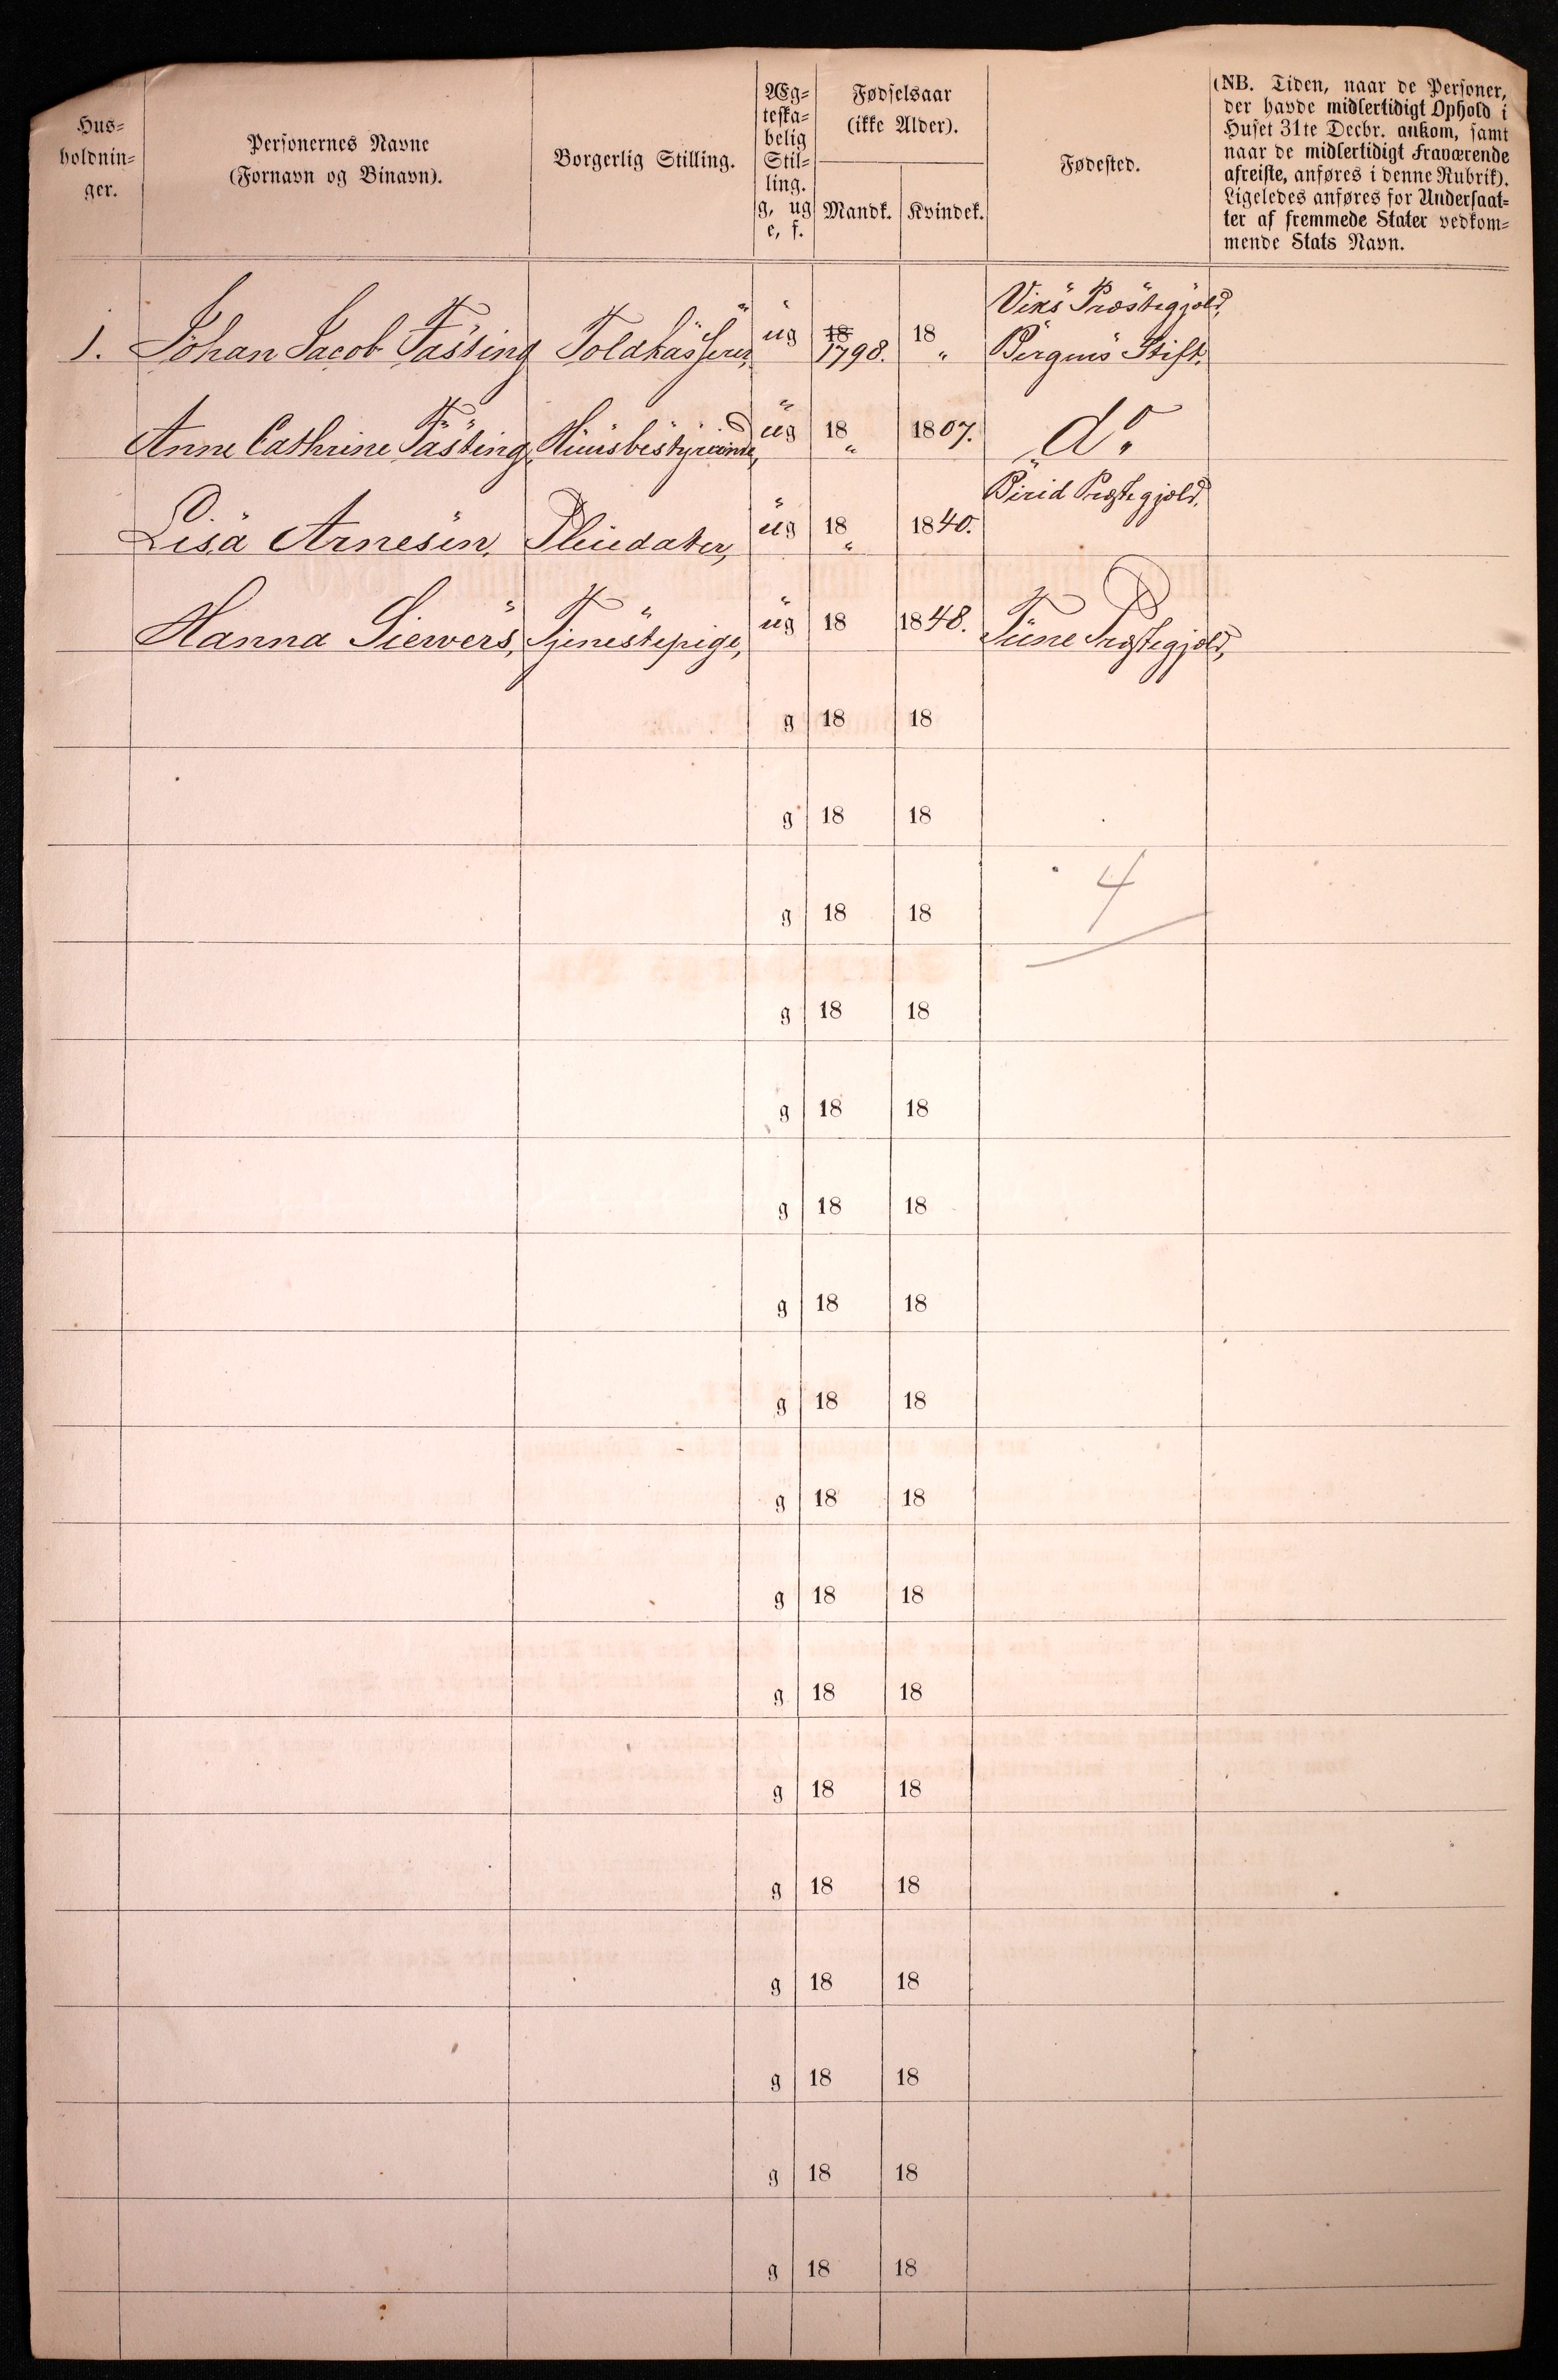 Hus=
holdnin=
ger.
Personernes Navne
(Fornavn og Binavn).
Borgerlig Stilling.
Æg=
teska=
belig
Stil=
ling.
g, ug
e, f.
Fødselsaar
(ikke Alder).
Mandk. Kvindek.
Fødested.
(NB. Tiden, naar de Personer,
der havde midlertidigt Ophold i
Huset 31te Decbr. ankom, samt
naar de midlertidigt Fraværende
afreiste, anføres i denne Rubrik).
Ligeledes anføres for Undersaat=
ter af fremmede Stater vedkom=
mende Stats Navn.
Viks Præstegjeld,
1. Johan Jacob Fasting Toldkasserer, ug 18 1798. 18 " Bergens Stift.
Anne Cathrine Fasting, Huusbestyrerinde, ug 18 " 1807. do "
Birid Præstegjeld,
Lisa Arnesen, Pleiedatter, ug 18 " 1840.
Hanna Siewers, Tjenestepige, ug 18 1848. Tune Præstegjeld,
g 18 18
g 18 18
g 18 18 4
g 18 18
g 18 18
g 18 18
g 18 18
g 18 18
g 18 18
g 18 18
g 18 18
g 18 18
g 18 18
g 18 18
g 18 18
g 18 18
g 18 18